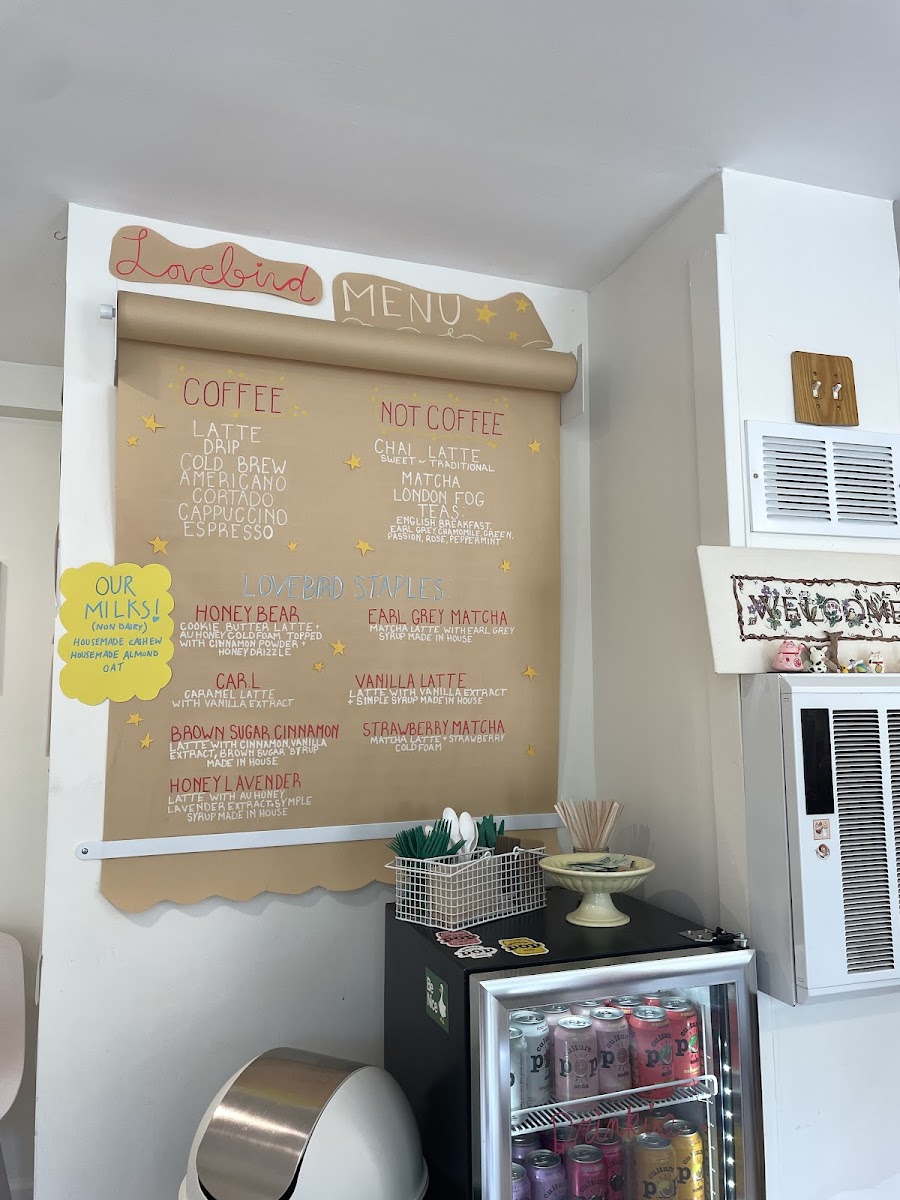 Lovebird
MENU
COFFEE
LATTE
DRIP
COLD BREW
AMERICANO
CORTADO
CAPPUCCINO
ESPRESSO
NOT COFFEE
CHAI LATTE
SWEET or TRADITIONAL
MATCHA
LONDON FOG
TEAS:
ENGLISH BREAKFAST,
EARL GREY, CHAMOMILE, GREEN,
PASSION, ROSE, PEPPERMINT
OUR
MILKS!
(NON DAIRY)
HOUSEMADE CASHEW
HOUSEMADE ALMOND
OAT
LOVEBIRD STAPLES:
HONEY BEAR
COOKIE BUTTER LATTE +
AU HONEY COLD FOAM TOPPED
WITH CINNAMON POWDER +
HONEY DRIZZLE
CARL
CARAMEL LATTE
WITH VANILLA EXTRACT
BROWN SUGAR CINNAMON
LATTE WITH CINNAMON, VANILLA
EXTRACT, BROWN SUGAR SYRUP
MADE IN HOUSE
HONEY LAVENDER
LATTE WITH AU HONEY
LAVENDER EXTRACT, SYMPLE
SYRUP MADE IN HOUSE
EARL GREY MATCHA
MATCHA LATTE WITH EARL GREY
SYRUP MADE IN HOUSE
VANILLA LATTE
LATTE WITH VANILLA EXTRACT
+ SIMPLE SYRUP MADE IN HOUSE
STRAWBERRY MATCHA
MATCHA LATTE + STRAWBERRY
COLD FOAM
WELCOME
Be
Nice
culture
pop
SODA
culture
pop
culture
pop
culture
pop
Drinks
culture
pop